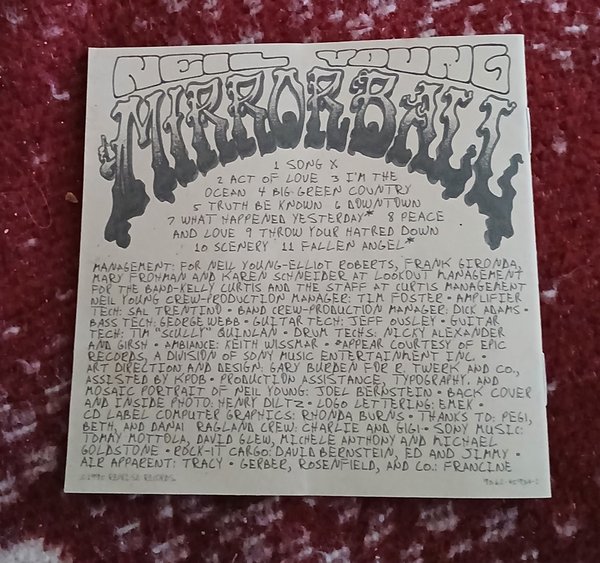 NEIL YOUNG
MIRROR BALL
1 SONG X
2 ACT OF LOVE 3 I'M THE
OCEAN 4 BIG GREEN COUNTRY
5 TRUTH BE KNOWN 6 DOWNTOWN
7 WHAT HAPPENED YESTERDAY* 8 PEACE
AND LOVE 9 THROW YOUR HATRED DOWN
10 SCENERY 11 FALLEN ANGEL*
MANAGEMENT: FOR NEIL YOUNG-ELLIOT ROBERTS, FRANK GIRONDA,
MARY FROHMAN AND KAREN SCHNEIDER AT LOOKOUT MANAGEMENT
FOR THE BAND-KELLY CURTIS AND THE STAFF AT CURTIS MANAGEMENT
NEIL YOUNG CREW-PRODUCTION MANAGER: TIM FOSTER • AMPLIFIER
TECH: SAL TRENTINO • BAND CREW-PRODUCTION MANAGER: DICK ADAMS •
BASS TECH: GEORGE WEBB • GUITAR TECH: JEFF OUSLEY • GUITAR
TECH: TIM "SCULLY" QUINLAN • DRUM TECHS: NICKY ALEXANDER
AND GIRSH • AMBIANCE: KEITH WISSMAR • *APPEAR COURTESY OF EPIC
RECORDS, A DIVISION OF SONY MUSIC ENTERTAINMENT INC. •
ART DIRECTION AND DESIGN: GARY BURDEN FOR R. TWERK AND CO.,
ASSISTED BY KPDB • PRODUCTION ASSISTANCE, TYPOGRAPHY, AND
MOSAIC PORTRAIT OF NEIL YOUNG: JOEL BERNSTEIN • BACK COVER
AND INSIDE PHOTO: HENRY DILTZ • LOGO LETTERING: EMEK •
CD LABEL COMPUTER GRAPHICS: RHONDA BURNS • THANKS TO: PEGI,
BETH, AND DANA RAGLAND CREW: CHARLIE AND GIGI • SONY MUSIC:
TOMMY MOTTOLA, DAVID GLEW, MICHELE ANTHONY AND MICHAEL
GOLDSTONE • ROCK-IT CARGO: DAVID BERNSTEIN, ED AND JIMMY •
AIR APPARENT: TRACY • GERBER, ROSENFIELD, AND CO.: FRANCINE
REPRISE RECORDS